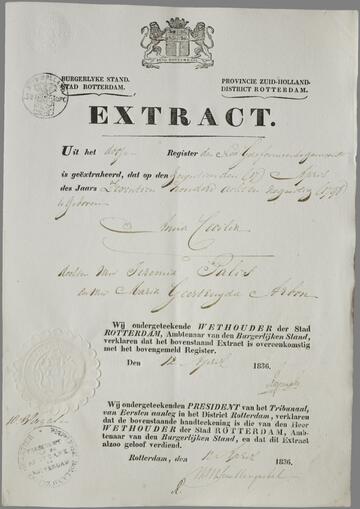 BURGERLYKE STAND.
STAD ROTTERDAM.
PROVINCIE ZUID-HOLLAND.
DISTRICT ROTTERDAM.
EXTRACT.
Uit het doop Register der Gereformeerde gemeente
is geëxtraheerd, dat op den April
des Jaars Zeventien honderd acht en negentig (1798)
is Geboren
Anna Cecilia
dochter van Jeremia Palos
en van Maria Geertruyda
Wij ondergeteekende WETHOUDER der Stad
ROTTERDAM, Ambtenaar van den Burgerlijken Stand,
verklaren dat het bovenstaand Extract is overeenkomstig
met het bovengemeld Register.
Den 12 April 1836.
Wij ondergeteekende PRESIDENT van het Tribunaal,
van Eersten aanleg in het District Rotterdam, verklaren
dat de bovenstaande handteekening is die van den Heer
WETHOUDER der Stad ROTTERDAM, Amb-
tenaar van den Burgerlijken Stand, en dat dit Extract
alzoo geloof verdient.
Rotterdam, den 12 April 1836.